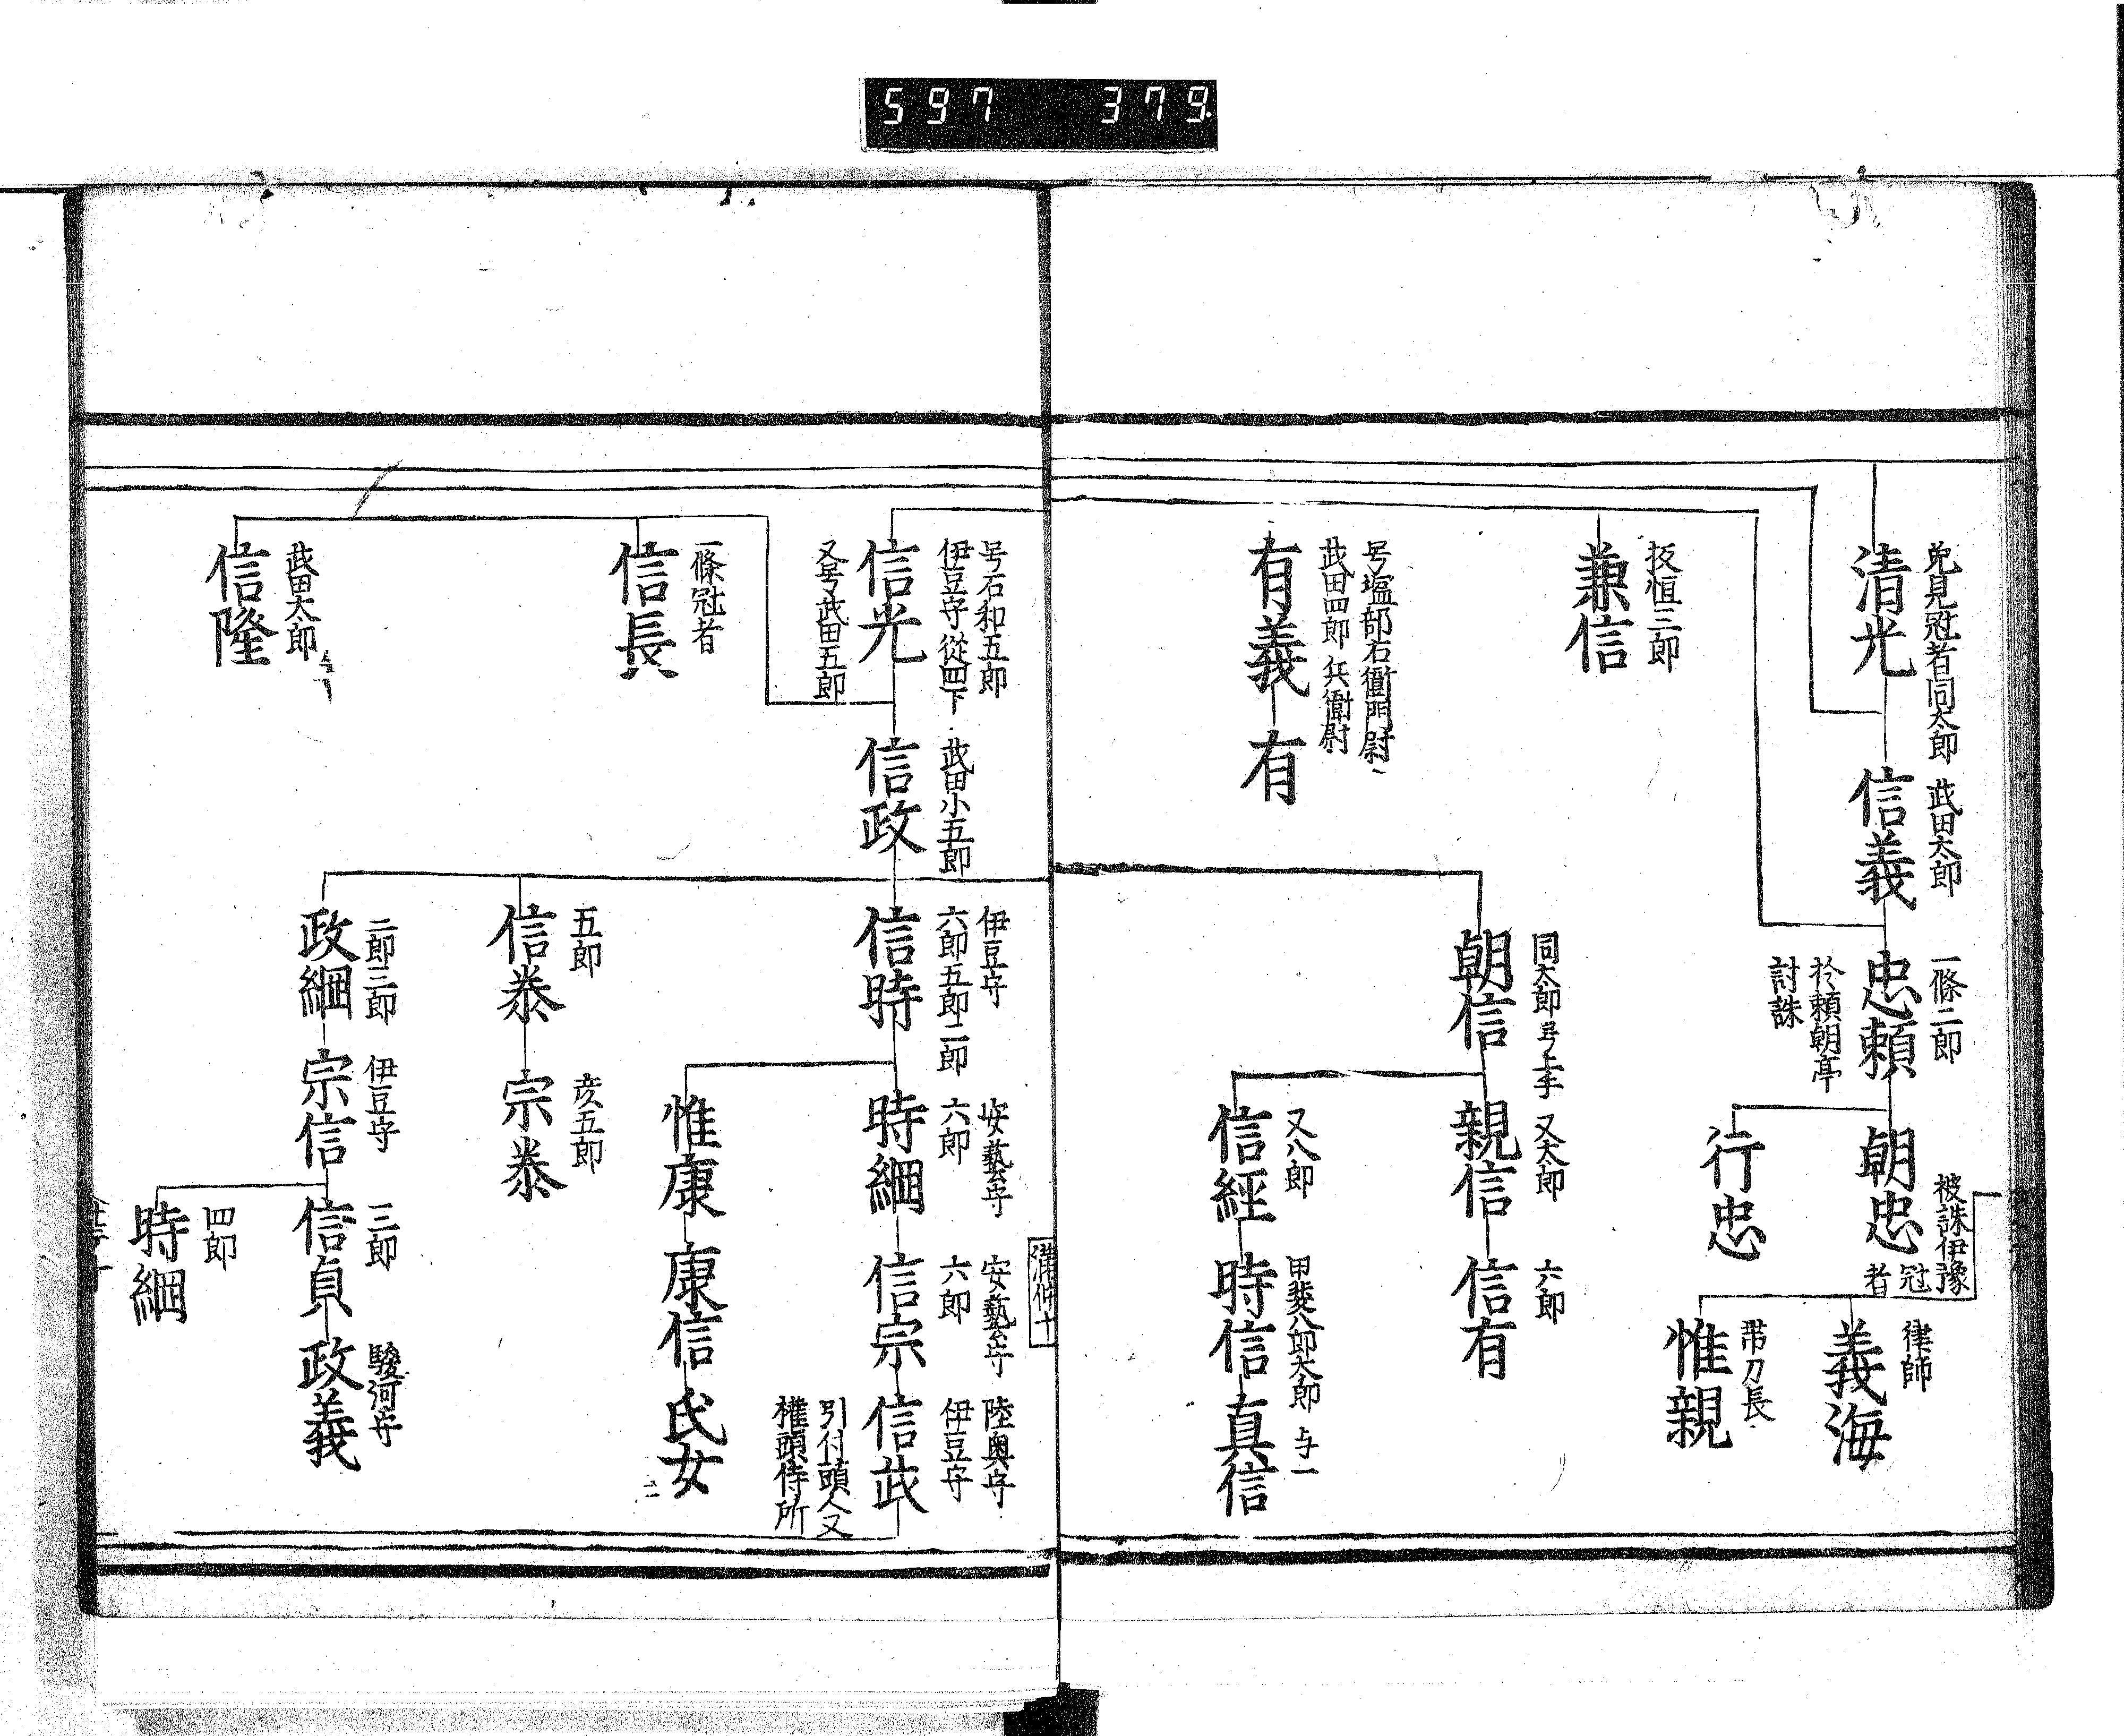 597 379
免見冠者同太郎
清光
武田太郎
信義
一條二郎
忠頼
於頼朝亭
討誅
朝忠
被誅伊豫
冠
者
行忠
律師
義海
帯刀長
惟親
板垣三郎
兼信
同太郎 弓上手
朝信
又太郎
親信
六郎
信有
号塩部右衛門尉
武田四郎 兵衛尉
有義
有
又八郎
信経
甲斐八郎太郎
時信
与一
真信
満仲十
号石和五郎
伊豆守 従四下
信光
又号武田五郎
武田小五郎
信政
伊豆守
六郎五郎二郎
信時
安藝守
六郎
時綱
安藝守
六郎
信宗
陸奥守
伊豆守
信武
引付頭人又
権頭侍所
惟康
康信
氏女
一條冠者
信長
五郎
信泰
彦五郎
宗泰
武田太郎
信隆
二郎三郎
政綱
伊豆守
宗信
三郎
信貞
駿河守
政義
四郎
時綱